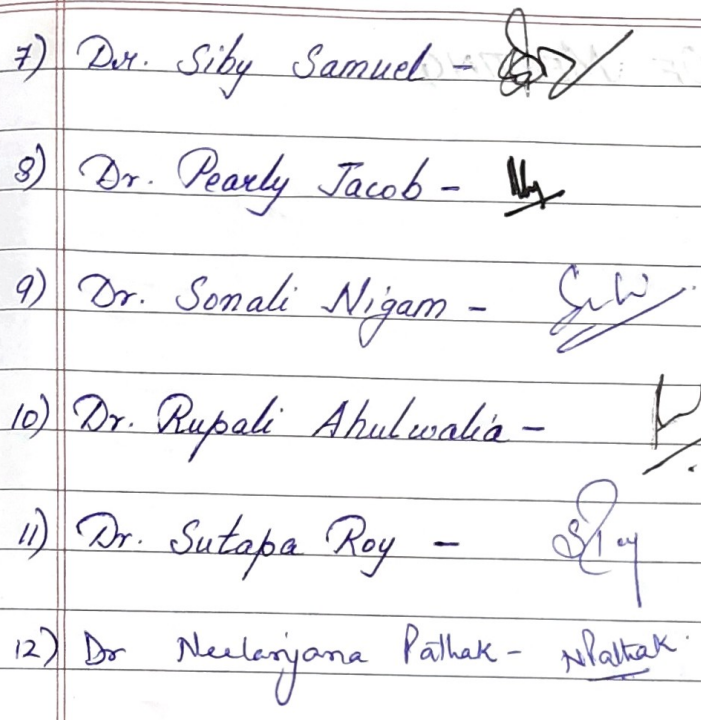 7) Dr. Siby Samuel -
8) Dr. Pearly Jacob -
9) Dr. Sonali Nigam -
10) Dr. Rupali Ahulwalia -
11) Dr. Sutapa Roy - SRoy
12) Dr Neelanjana Pathak - NPathak